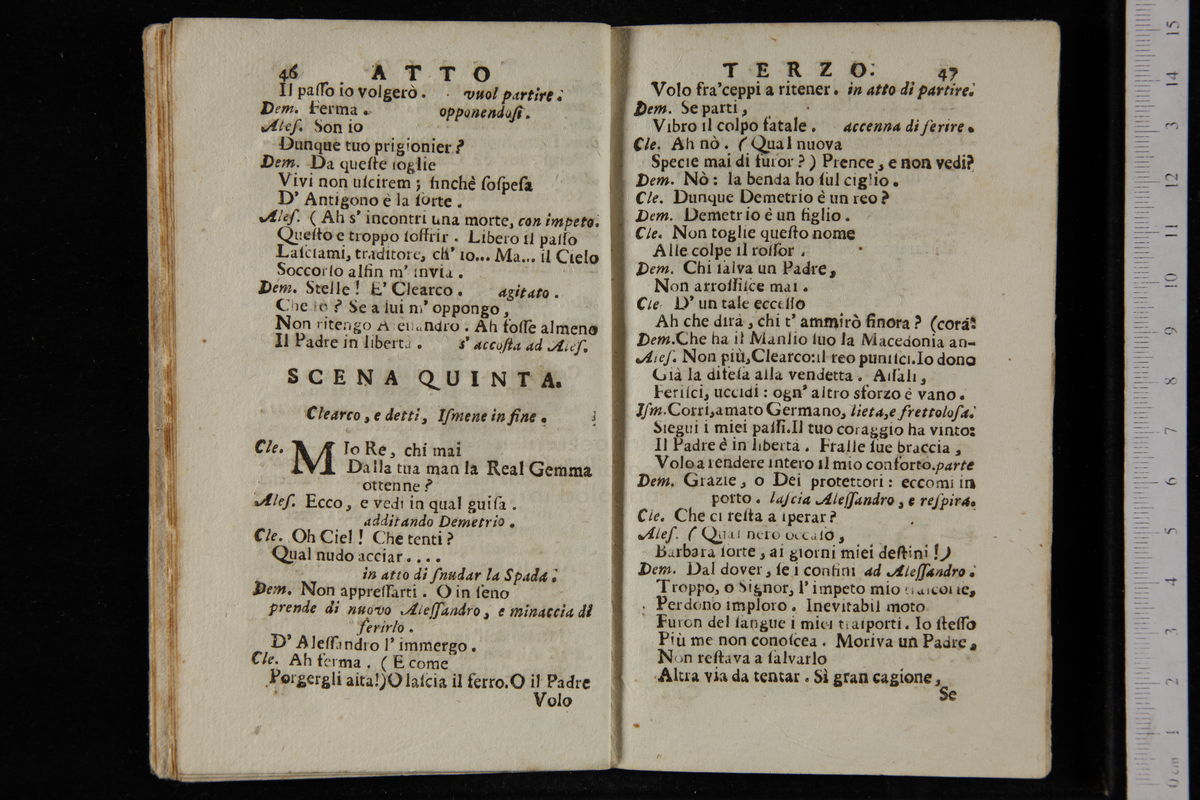 46 ATTO
Il paſſo io volgerò. vuol partire.
Dem. Ferma. opponendoſi.
Aleſ. Son io
Dunque tuo prigionier?
Dem. Da queſte ſoglie
Vivi non uſcirem; finchè ſoſpeſa
D' Antigono è la ſorte.
Aleſ. (Ah s' incontri una morte, con impeto.
Queſto e troppo ſoffrir. Libero il paſſo
Laſciami, traditore, ch' io... Ma... il Cielo
Soccorſo alfin m' invia.
Dem. Stelle! E' Clearco. agitato.
Che io? Se a lui m' oppongo,
Non ritengo Aleſſandro. Ah foſſe almeno
Il Padre in liberta. s' accoſta ad Aleſ.
SCENA QUINTA.
Clearco, e detti, Iſmene in fine.
Cle. MIo Re, chi mai
Dalla tua man la Real Gemma
ottenne?
Aleſ. Ecco, e vedi in qual guiſa.
additando Demetrio.
Cle. Oh Ciel! Che tenti?
Qual nudo acciar....
in atto di ſnudar la Spada.
Dem. Non appreſſarti. O in ſeno
prende di nuovo Aleſſandro, e minaccia di
ferirlo.
D' Aleſſandro l' immergo.
Cle. Ah ferma. (E come
Porgergli aita!) O laſcia il ferro. O il Padre
Volo
TERZO. 47
Volo fra' ceppi a ritener. in atto di partire.
Dem. Se parti,
Vibro il colpo fatale. accenna di ferire.
Cle. Ah nò. (Qual nuova
Specie mai di furor?) Prence, e non vedi?
Dem. Nò: la benda ho ſul ciglio.
Cle. Dunque Demetrio è un reo?
Dem. Demetrio è un figlio.
Cle. Non toglie queſto nome
Alle colpe il roſſor.
Dem. Chi ſalva un Padre,
Non arroſſiſce mai.
Cle. D' un tale ecceſſo
Ah che dirà, chi t' ammirò finora? (cora.
Dem. Che ha il Manlio ſuo la Macedonia an-
Aleſ. Non più, Clearco: il reo puniſci. Io dono
Già la difeſa alla vendetta. Aſſali,
Feriſci, uccidi: ogn' altro sforzo è vano.
Iſm. Corri, amato Germano, lieta, e frettoloſa.
Siegui i miei paſſi. Il tuo coraggio ha vinto:
Il Padre è in libertà. Fralle ſue braccia,
Volo a rendere intero il mio conforto. parte
Dem. Grazie, o Dei protettori: eccomi in
porto. laſcia Aleſſandro, e reſpira.
Cle. Che ci reſta a ſperar?
Aleſ. (Qual nero occaſo,
Barbara ſorte, ai giorni miei deſtini!)
Dem. Dal dover, ſe i confini ad Aleſſandro.
Troppo, o Signor, l' impeto mio traſcorſe,
Perdono imploro. Inevitabil moto
Furon del ſangue i miei traſporti. Io ſteſſo
Più me non conoſcea. Moriva un Padre,
Non reſtava a ſalvarlo
Altra via da tentar. Sì gran cagione,
Se
15
14
13
12
11
10
9
8
7
6
5
4
3
2
1
0 cm